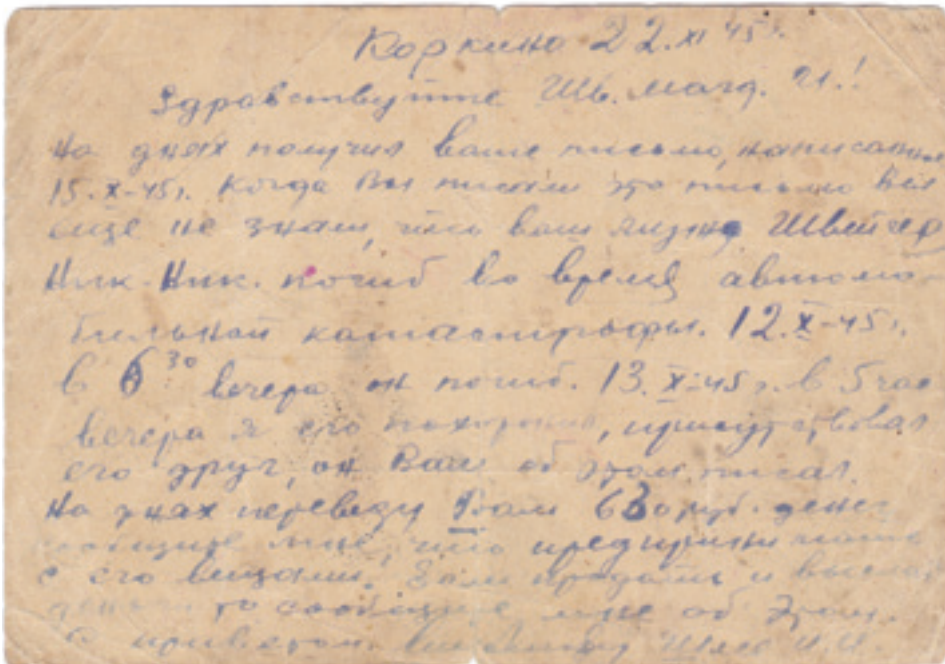 Коркино 22.XI 45 г.
Здравствуйте Шв. Магд. И.!
На днях получил ваше письмо, написанное
15.X-45 г. Когда Вы писали это письмо Вы
еще не знали, что ваш Швейцер
Ник. Ник. погиб во время автомо-
бильной катастрофы. 12.X-45 г.
в 6 30 вечера он погиб. 13.X-45 г. в 5 час
вечера я его похоронил, присутствовал
его друг, он Вам об этом писал.
На днях переведу Вам 630 руб. денег
сообщите мне, что предпринимать
с его вещами. Если продать и выслать
деньги то сообщите мне об этом.
С приветом И.И.